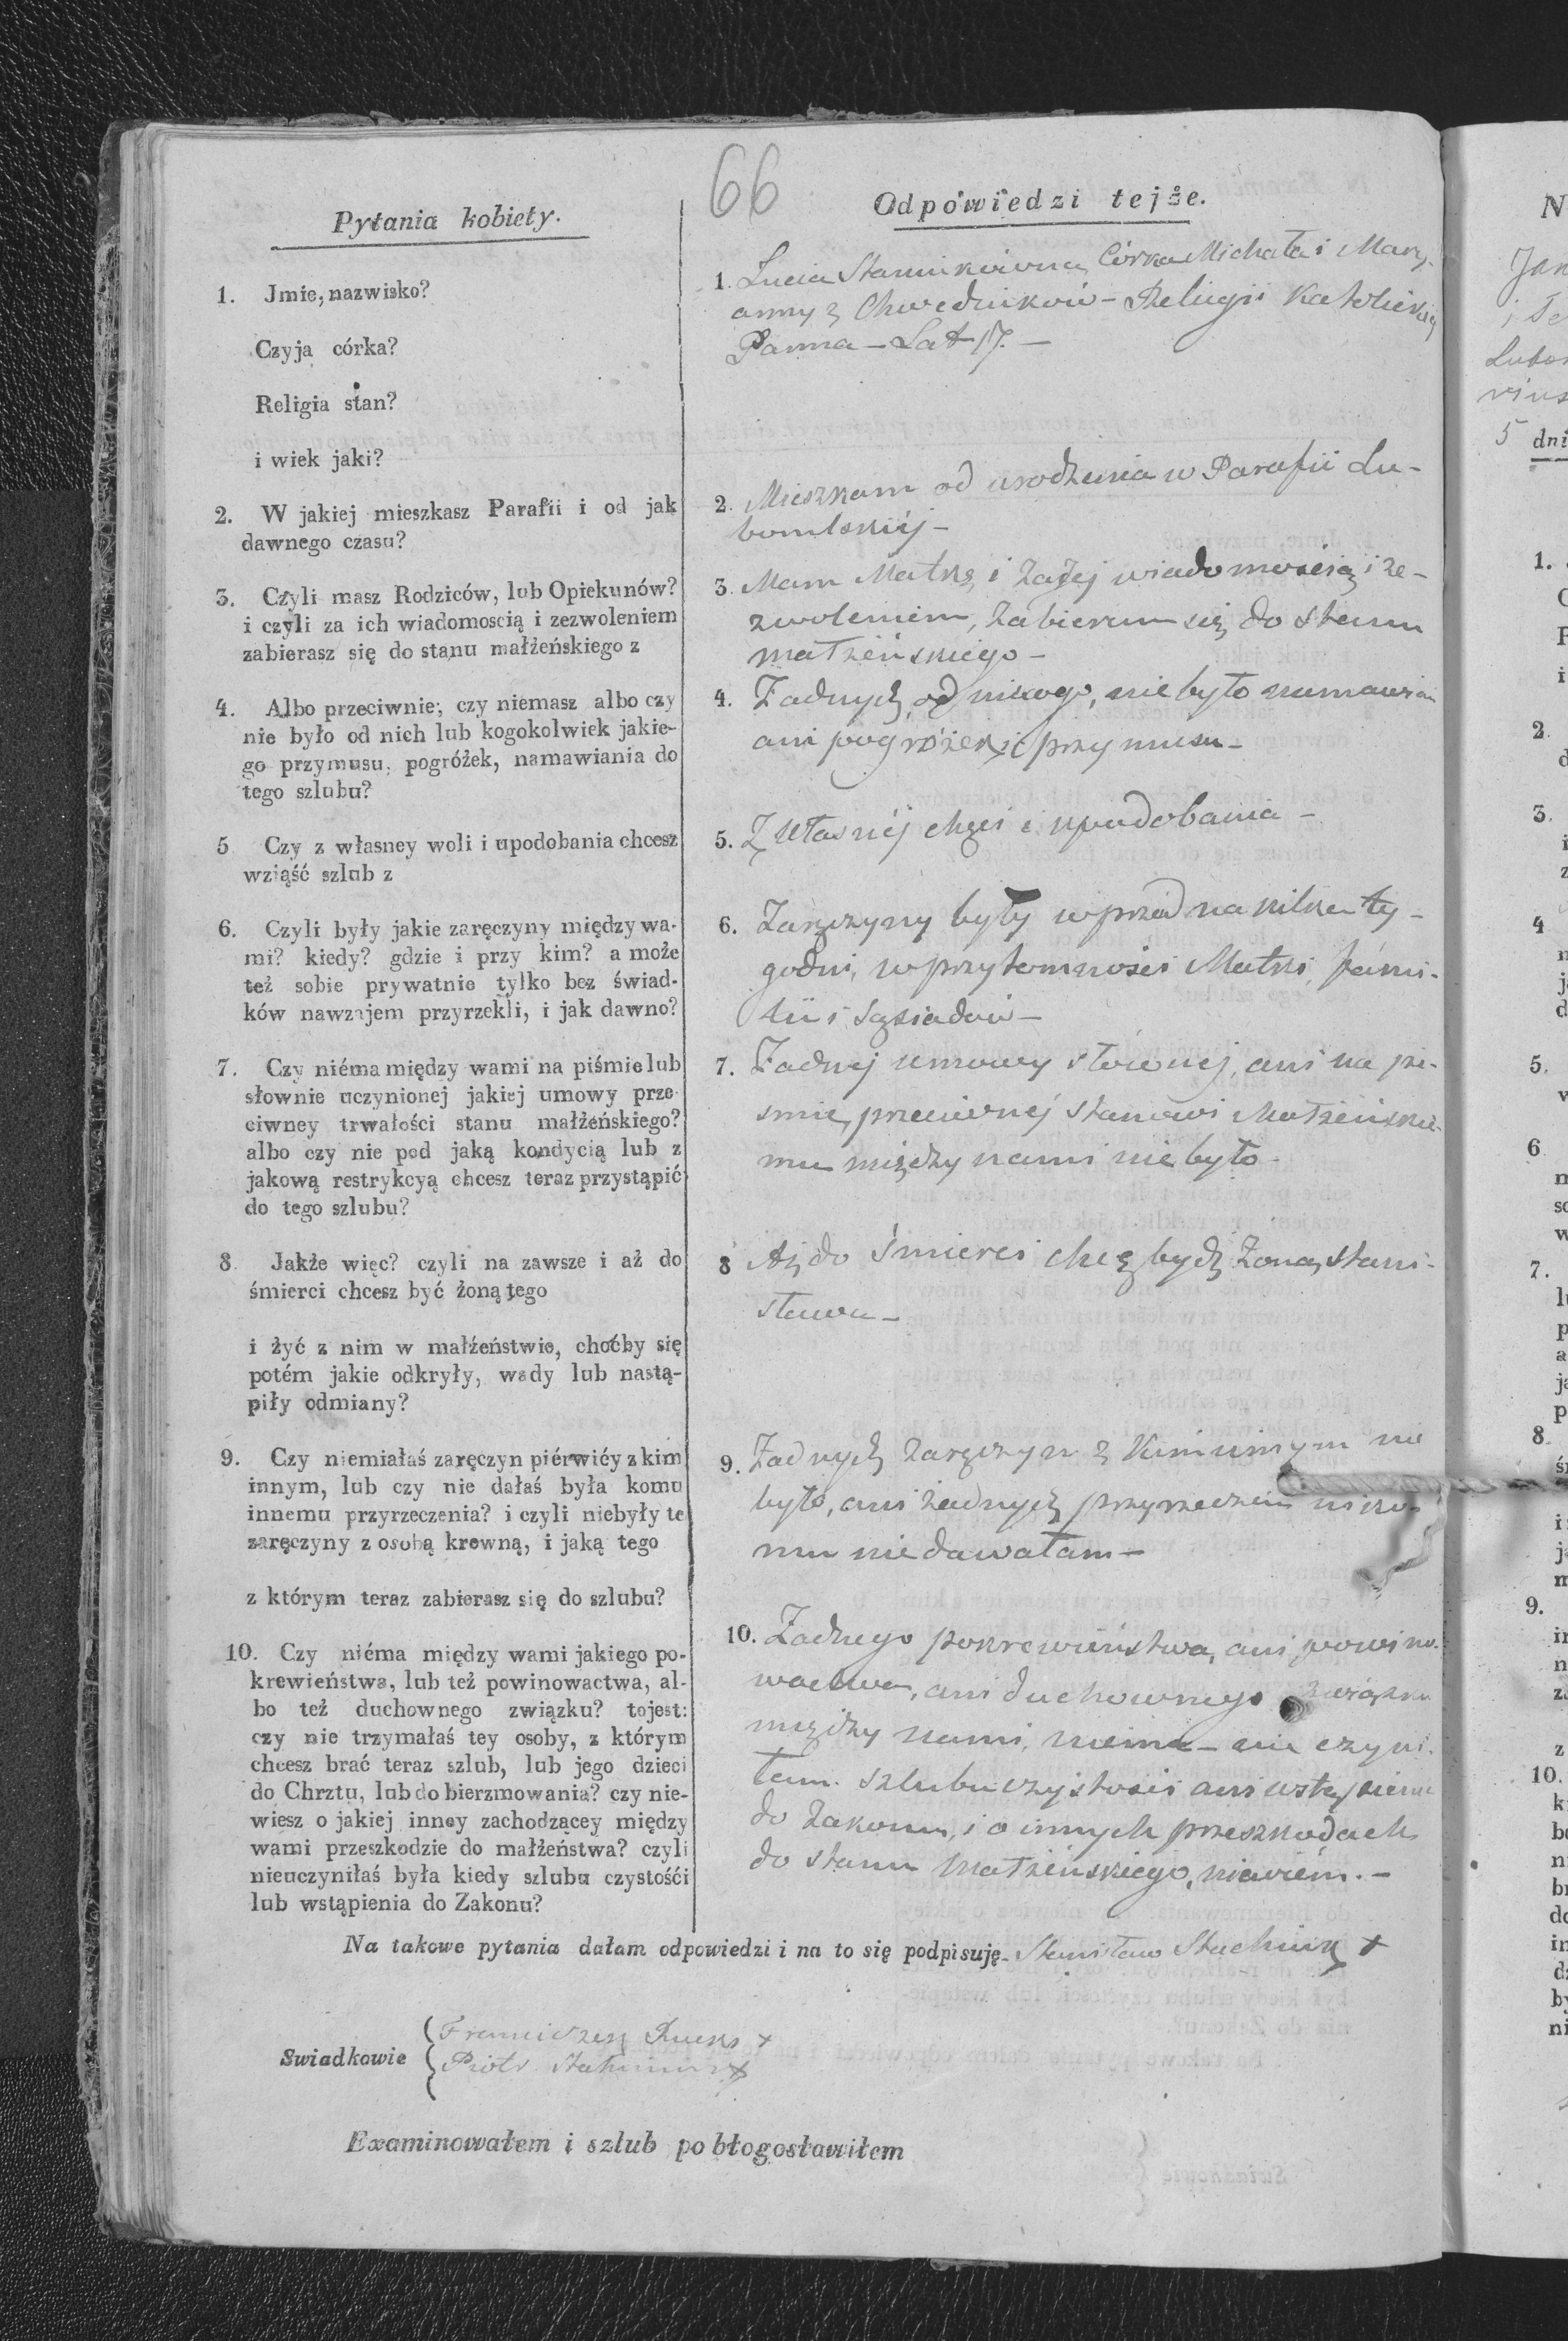 66
Pytania kobiety.
1. Jmie, nazwisko?
Czyja córka?
Religia stan?
i wiek jaki?
2. W jakiej mieszkasz Parafii i od jak
dawnego czasu?
3. Czyli masz Rodziców, lub Opiekunów?
i czyli za ich wiadomoscią i zezwoleniem
zabierasz się do stanu małżeńskiego z
4. Albo przeciwnie; czy niemasz albo czy
nie było od nich lub kogokolwiek jakie-
go przymusu, pogróżek, namawiania do
tego szlubu?
5 Czy z własney woli i upodobania chcesz
wziąść szlub z
6. Czyli były jakie zaręczyny między wa-
mi? kiedy? gdzie i przy kim? a może
też sobie prywatnie tylko bez świad-
ków nawzajem przyrzekli, i jak dawno?
7. Czy niéma między wami na piśmie lub
słownie uczynionej jakiej umowy prze-
ciwney trwałości stanu małżeńskiego?
albo czy nie pod jaką kondycią lub z
jakową restrykcyą chcesz teraz przystąpić
do tego szlubu?
8 Jakże więc? czyli na zawsze i aż do
śmierci chcesz być żoną tego
i żyć z nim w małżeństwie, choćby się
potém jakie odkryły, wady lub nastą-
piły odmiany?
9. Czy niemiałaś zaręczyn piérwićy z kim
innym, lub czy nie dałaś była komu
innemu przyrzeczenia? i czyli niebyły te
zaręczyny z osobą krewną, i jaką tego
z którym teraz zabierasz się do szlubu?
10. Czy niéma między wami jakiego po-
krewieństwa, lub też powinowactwa, al-
bo też duchownego związku? tojest:
czy nie trzymałaś tey osoby, z którym
chcesz brać teraz szlub, lub jego dzieci
do Chrztu, lub do bierzmowania? czy nie-
wiesz o jakiej inney zachodzącey między
wami przeszkodzie do małżeństwa? czyli
nieuczyniłaś była kiedy szlubu czystośći
lub wstąpienia do Zakonu?
Odpowiedzi tejże.
1. Lucia Córka Michała i Mary-
anny z Chwedziuków - Religii Katolickiej
Panna - Lat 17. -
2. Mieszkam od urodzenia w Parafii Lu-
bomlskiéj -
3. Mam Matkę, i za Jej wiadomością i ze-
zwoleniem, zabieram się do stanu
małżeńskiego -
4. Żadnych, od nikogo, nie było namawiań
ani pogróżek i przymusu -
5. Z własnéj chęci i upodobania -
6. Zaręczyny były wprzód na kilka ty-
godni, w przytomności Matki, fami-
lii i Sąsiadów -
7. Żadnej umowy słownej, ani na pi-
smie, przeciwnéj stanowi Małżeńskie-
mu między nami nie było -
8 Aż do śmierci chcę bydź Żoną Stani-
sława -
9. Żadnych zaręczyn z kim innym nie
było, ani żadnych przyrzeczeń niko-
mu nie dawałam -
10. Żadnego pokrewieństwa, ani powino-
wactwa, ani duchownego związku
między nami, niema - nie czyni-
łam szlubu czystości ani wstąpienia
do Zakonu, i o innych przeszkodach
do stanu Małżeńskiego, niewiém. -
Na takowe pytania dałam odpowiedzi i na to się podpisuję. Stanisław +
Swiadkowie
Franciszek +
Piotr +
Examinowałem i szlub pobłogosławiłem
N
Jan
5 dni
1.
2
3.
4
5.
6
7.
8.
9.
10.